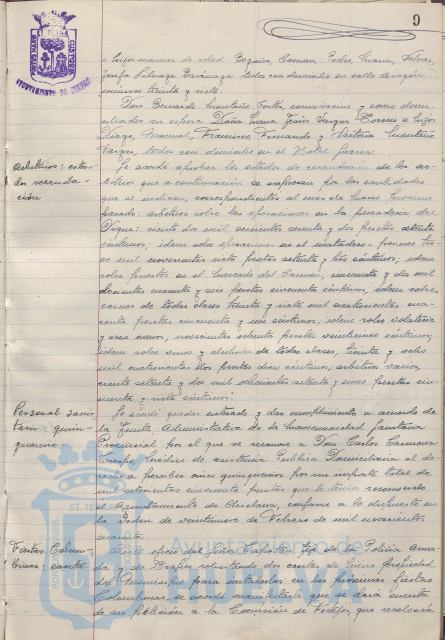 9
AYUNTAMIENTO DE HUELVA
e hijos menores de edad Begoña, Carmen, Pedro, Juana, Dolores,
Josefa todos con domicilio en calle Aragón
número treinta y siete.
Don Bernardo Montaño Cortés, como vecino y como domi-
ciliados su esposa Doña Juana Vargas e hijos
Diego, Manuel, Francisco, Fernando y Victoria Montaño
Vargas, todos con domicilio en el Hotel
Arbitrios: esta-
dos recauda-
ción
Se acordó aprobar los estados de recaudación de los ar-
bitrios que a continuación se expresan por las cantidades
que se indican, correspondientes al mes de Junio próximo
pasado: arbitrios sobre las operaciones en la pescadería del
mil seiscientas setenta y dos pesetas setenta
céntimos; idem sobre operaciones en el matadero
mil novecientas siete pesetas setenta y tres céntimos; idem
sobre puestos en el Mercado del Carmen, cincuenta y dos mil
doscientas cuarenta y seis pesetas cincuenta céntimos; idem sobre
carnes de todas clases, treinta y siete mil cuatrocientas
pesetas cincuenta y un céntimos; idem sobre volatería
y caza menor, novecientas ochenta pesetas veinticinco céntimos;
idem sobre vinos y alcoholes de todas clases, treinta y ocho
mil cuatrocientas dos pesetas diez céntimos; arbitrios varios,
ciento setenta y dos mil ochocientas setenta y cinco pesetas cin-
cuenta y siete céntimos.
Personal sani-
tario: quin-
quenio
Se acordó quedar enterado y dar cumplimiento a acuerdo de
la Junta Administrativa de la Mancomunidad Sanitaria
Provincial, por el que se reconoce a Don Carlos Carmona
Crespo, Médico de Asistencia Pública Domiciliaria el de-
recho a percibir cinco quinquenios por un importe total de
mil setecientas cincuenta pesetas que le tenía reconocido
el Ayuntamiento de Chiclana, conforme a lo dispuesto en
la Orden de veintinueve de Febrero de mil novecientos
cuarenta.
Fiestas Colom-
binas: casetas
oficio del Señor Capitán Jefe de la Policía Arma-
da y de Tráfico solicitando dos casetas de propiedad
del Municipio para instalarlas en las próximas fiestas
Colombinas, se acordó manifestarle que se dará cuenta
de su petición a la Comisión de Festejos que resolverá
Ayuntamiento de